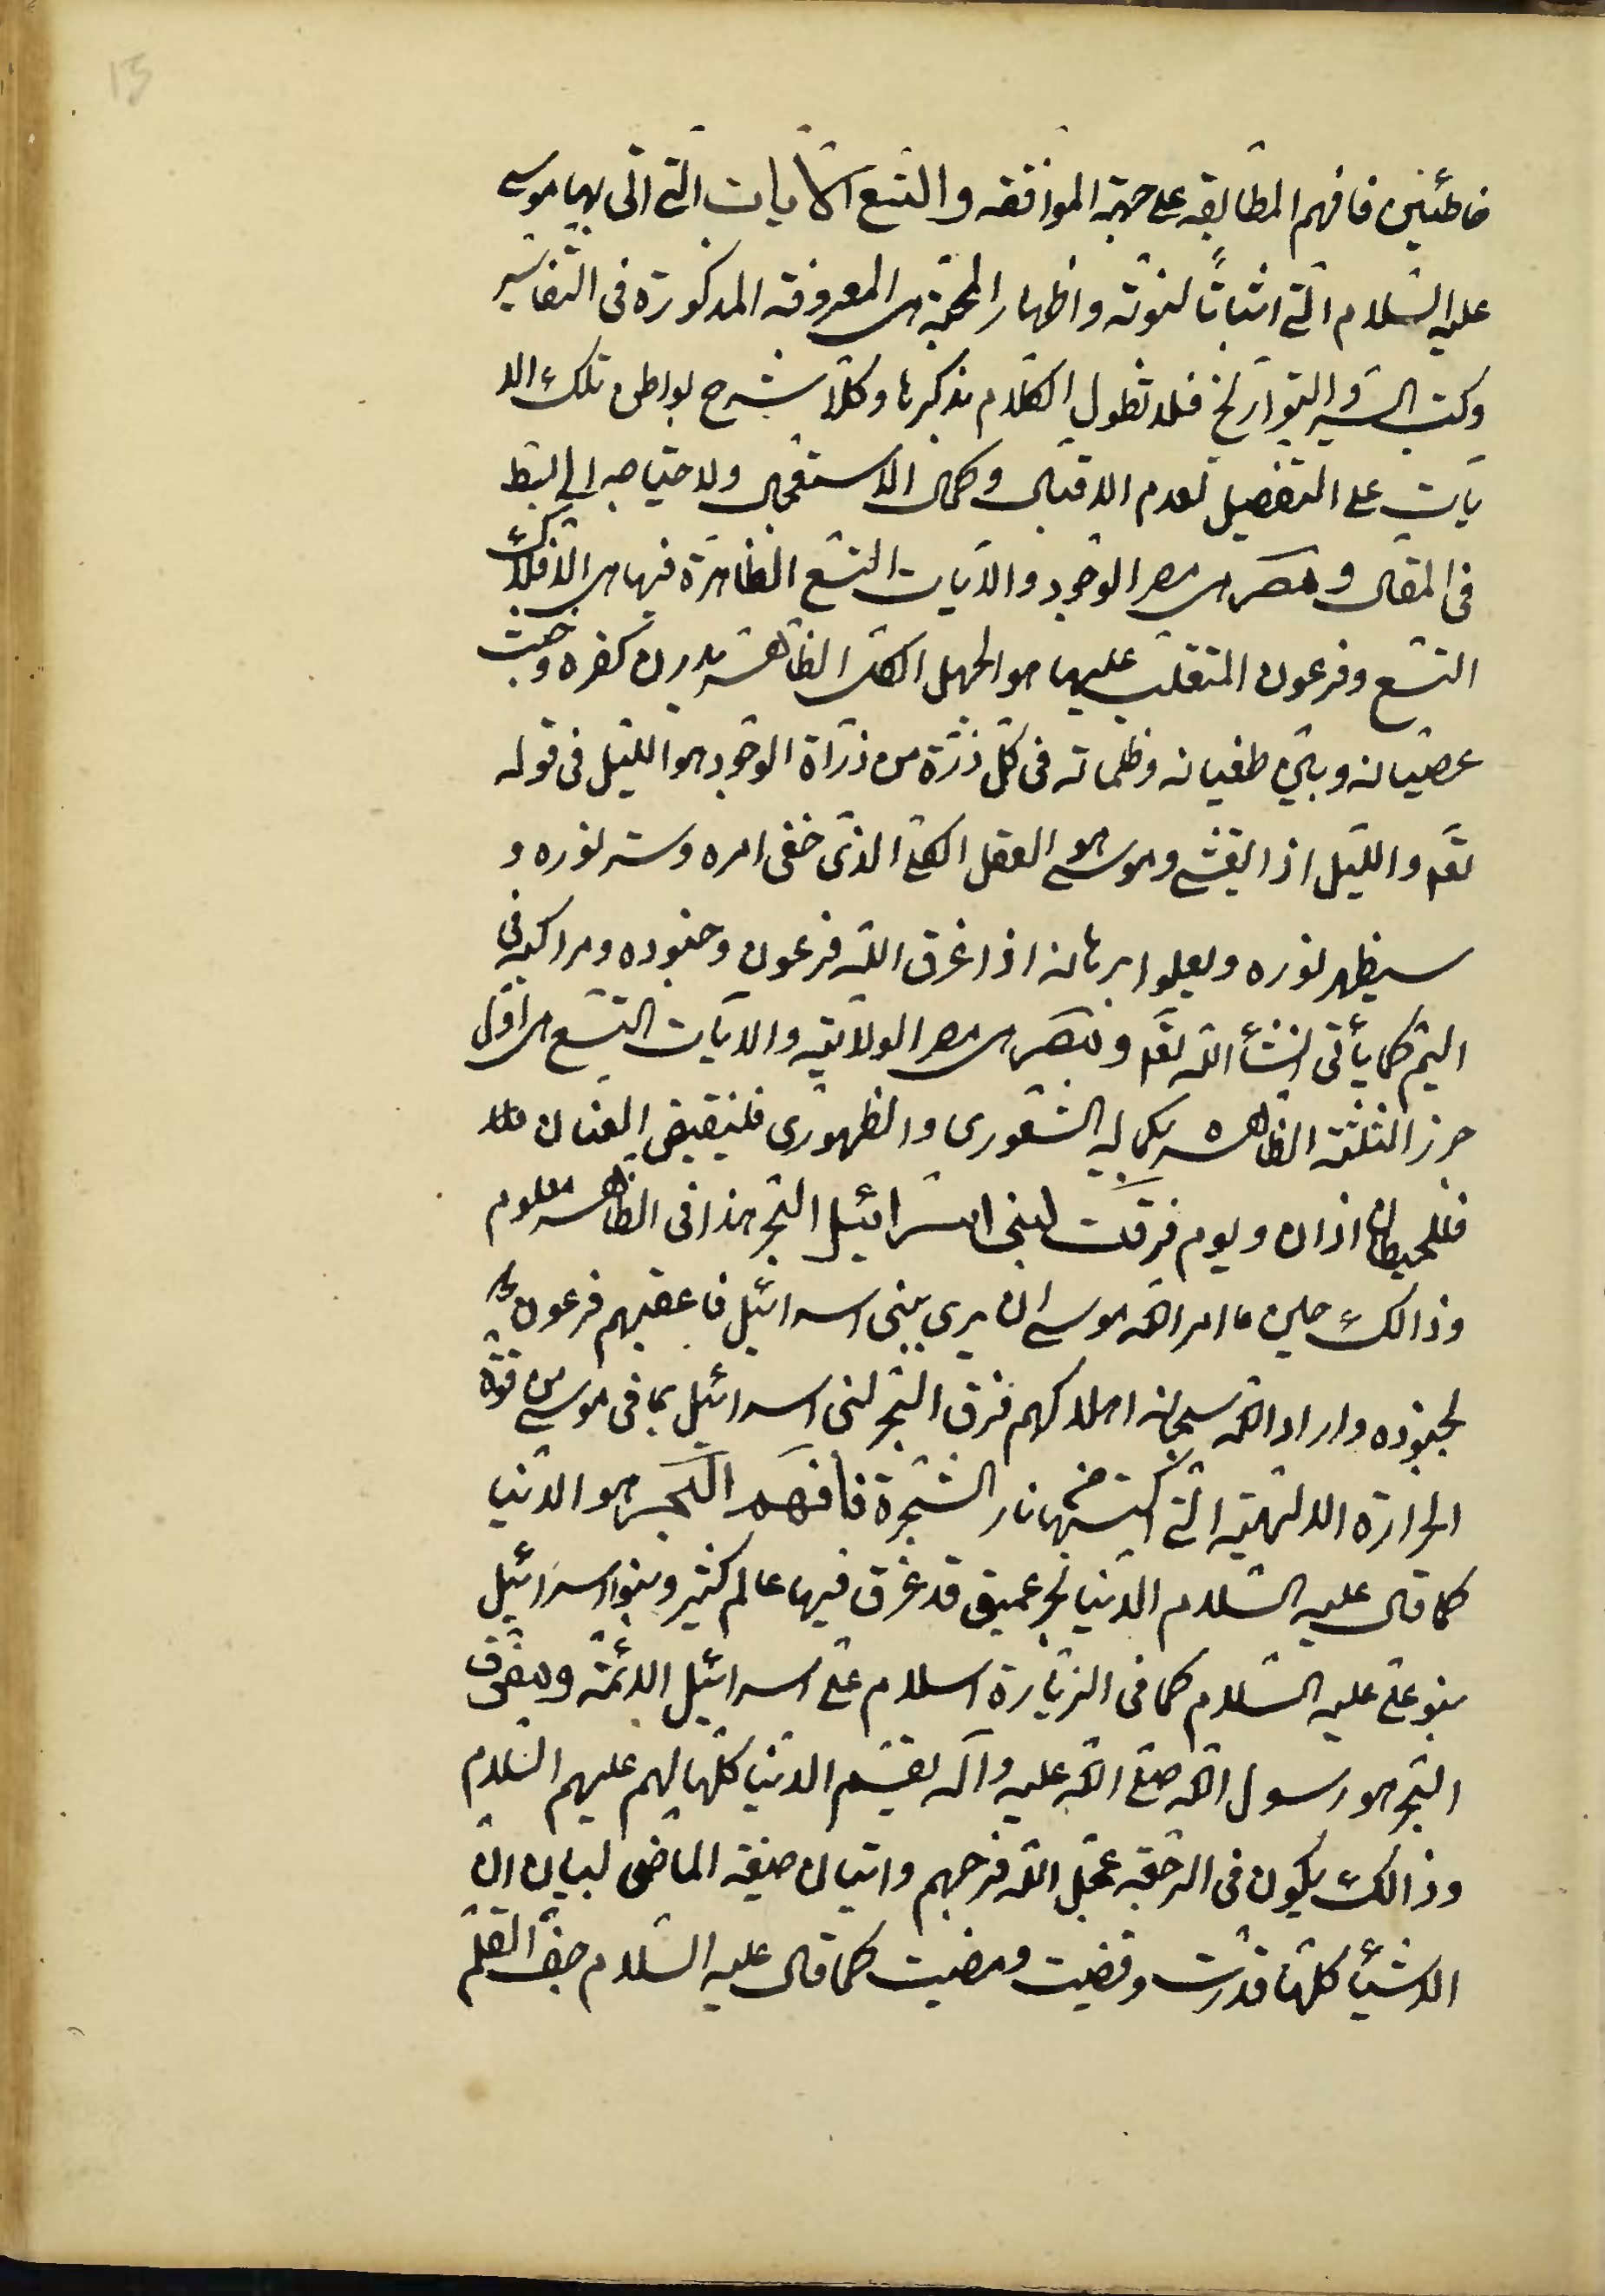 15
خاطئين فافهم المطابقه على جهة الموافقه والتسع الايات التى اتى بها موسى
عليه السّلام التى اثباتًا لنبوته واظهار الحجّة هى المعروفة المذكورة فى التفاسير
وكتب السّير والتواريخ فلا نطول الكلام بذكرها وكذا شرح بواطن تلك الا
يات على التفصيل لعدم الاقبال وكمال الاستعجال ولاحتياجه الى البسط
فى المقال ومصر هى مصر الوجود والايات التسع الظاهرة فيها هى الافلاك
التسع وفرعون المتغلب عليها هو الجهل الكلى الظاهر بدرن كفره وخبث
عصيانه وبغى طغيانه وظلماته فى كل ذرّة من ذراة الوجود هو الليل فى قوله
تعَا والليل اذا يغشى وموسى هو العقل الكلى الذى خفى امره وستر نوره و
سيظهر نوره ويعلوا برهانه اذا اغرق الله فرعون وجنوده ومراكبه فى
اليم كما يأتى انشأ الله تعَا ومصر هى مصر الولاية والايات التسع هى اول
حرز الثلثة الظاهره بكماليه الشعورى والظهورى فلنقبض العنان
فللحيطان اذان ويوم فرقت لبنى اسرائيل البحر هذا فى الظاهر معلوم
وذالك حين ما امر الله موسى ان يسرى ببنى اسرائيل فاعقبهم فرعون
بجنوده واراد الله سبحانه اهلاكهم فرق البحر لبنى اسرائيل بما فى موسى من قوّة
الحرارة الالهيّة التى اكتسبها من نار الشجرة فافهم البحر هو الدنيا
كما قال عليه السّلام الدّنيا بحر عميق قد غرق فيها عالم كثير وبنوا اسرائيل
بنو على عليه السّلام كما فى الزيارة السلام على اسرائيل الائمّة ومفرق
البحر هو رسول الله صلى الله عليه وآله يقسم الدّنيا كلّها لهم عليهم السّلام
وذالك يكون فى الرّجعة عجّل الله فرجهم واتيان صيغة الماضى لبيان ان
الاشيأ كلّها قدّرت وقضيت ومضيت كما قال عليه السّلام جفّ القلم